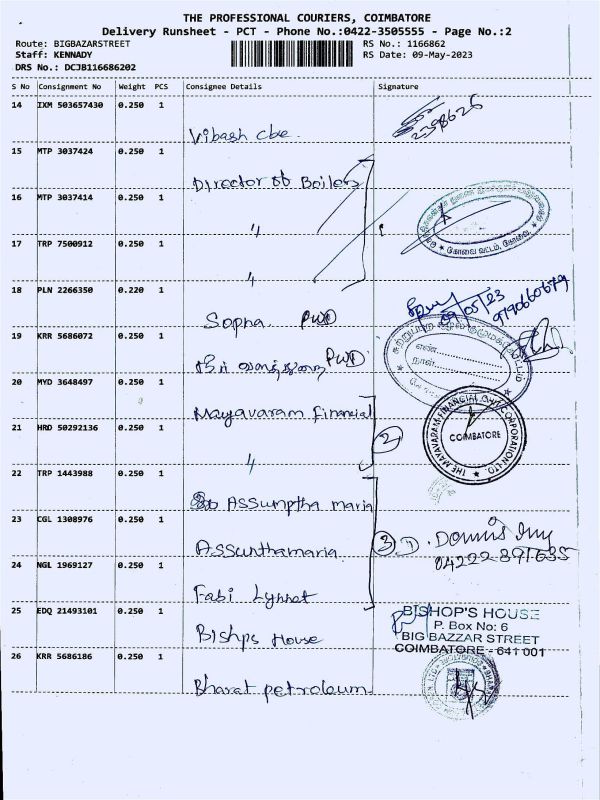 THE PROFESSIONAL COURIERS, COIMBATORE
Delivery Runsheet - PCT - Phone No.:0422-3505555 - Page No.:2
Route: BIGBAZARSTREET RS No.: 1166862
Staff: KENNADY RS Date: 09-May-2023
DRS No.: DCJB116686202
S No Consignment No Weight PCS Consignee Details Signature
14 IXM 503657430 0.250 1
Vibash cbe. 2398626
15 MTP 3037424 0.250 1
Director of Boilers
16 MTP 3037414 0.250 1
"
17 TRP 7500912 0.250 1
"
கோவை வட்டம், கோவை.
18 PLN 2266350 0.220 1
09/05/23
Sopna. PWD
19 KRR 5686072 0.250 1
என்:
நாள்:
PWD
20 MYD 3648497 0.250 1
Mayavaram Financial
THE MAYAVARAM FINANCIAL CHIT CORPORATION LTD.
COIMBATORE
21 HRO 50292136 0.250 1
2
"
22 TRP 1443988 0.250 1
Assumptha maria
23 CGL 1308976 0.250 1
3
Assunthamaria.
24 NGL 1969127 0.250 1
Fabi Lynnet
25 EDQ 21493101 0.250 1
Bishps House
BISHOP'S HOUSE
P. Box No: 6
BIG BAZZAR STREET
COIMBATORE - 641 001
26 KRR 5686186 0.250 1
Bharat petroleum